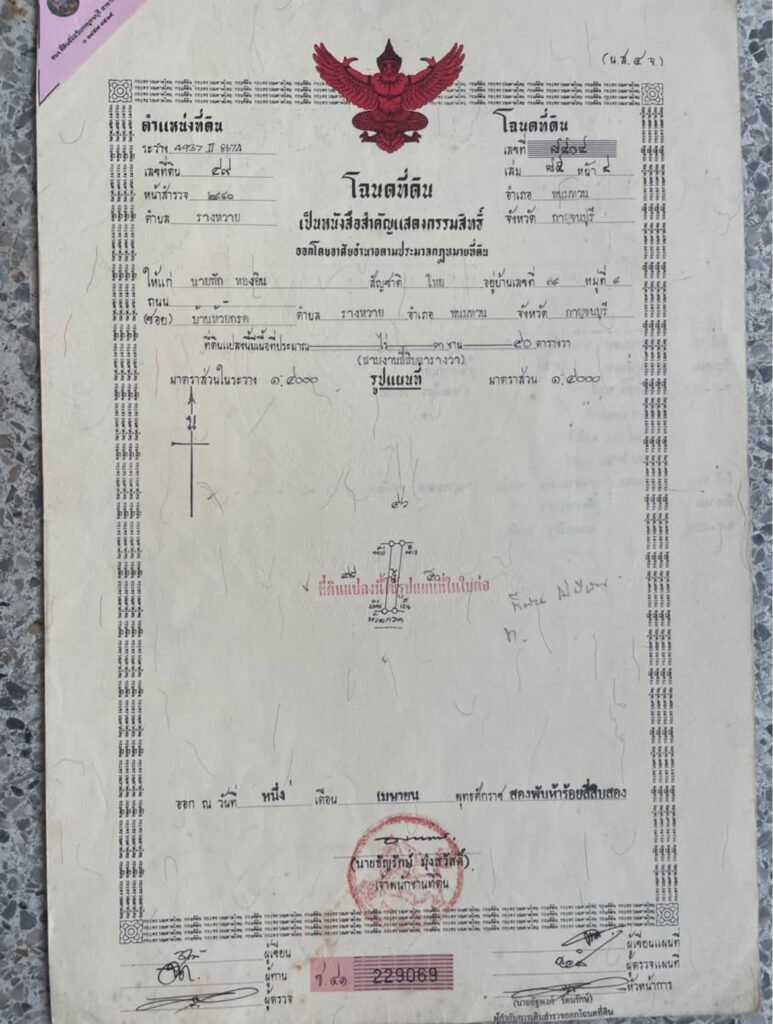 (น.ส. ๔ จ.)
ตำแหน่งที่ดิน
ระวาง 4937 II 8674
เลขที่ดิน ๔๙
หน้าสำรวจ ๒๔๔๐
ตำบล รางหวาย
โฉนดที่ดิน
เลขที่ ๘๔๐๔
เล่ม ๘๕ หน้า ๔
อำเภอ พนมทวน
จังหวัด กาญจนบุรี
โฉนดที่ดิน
เป็นหนังสือสำคัญแสดงกรรมสิทธิ์
ออกโดยอาศัยอำนาจตามประมวลกฎหมายที่ดิน
ให้แก่ นายฟัก ทองอิน สัญชาติ ไทย อยู่บ้านเลขที่ ๗๙ หมู่ที่ ๙
ถนน
(ซอย) บ้านห้วยกรด ตำบล รางหวาย อำเภอ พนมทวน จังหวัด กาญจนบุรี
ที่ดินแปลงนี้มีเนื้อที่ประมาณ ไร่ ๓ งาน ๔๐ ตารางวา
(สามงานสี่สิบตารางวา)
มาตราส่วนในระวาง ๑:๔๐๐๐ รูปแผนที่ มาตราส่วน ๑:๔๐๐๐
น
ที่ดินแปลงนี้มีรูปแผนที่ในใบต่อ
ออก ณ วันที่ หนึ่ง เดือน เมษายน พุทธศักราช สองพันห้าร้อยสี่สิบสอง
(นายธัญรักษ์ มุ่งสวัสดิ์)
เจ้าพนักงานที่ดิน
ผู้เขียน
ผู้ทาน
ผู้ตรวจ
ช. ๔๑ 229069
ผู้เขียนแผนที่
ผู้ตรวจแผนที่
หัวหน้าการ
(นายอัฐพงศ์ รัตนรักษ์)
ผู้กำกับการเดินสำรวจออกโฉนดที่ดิน